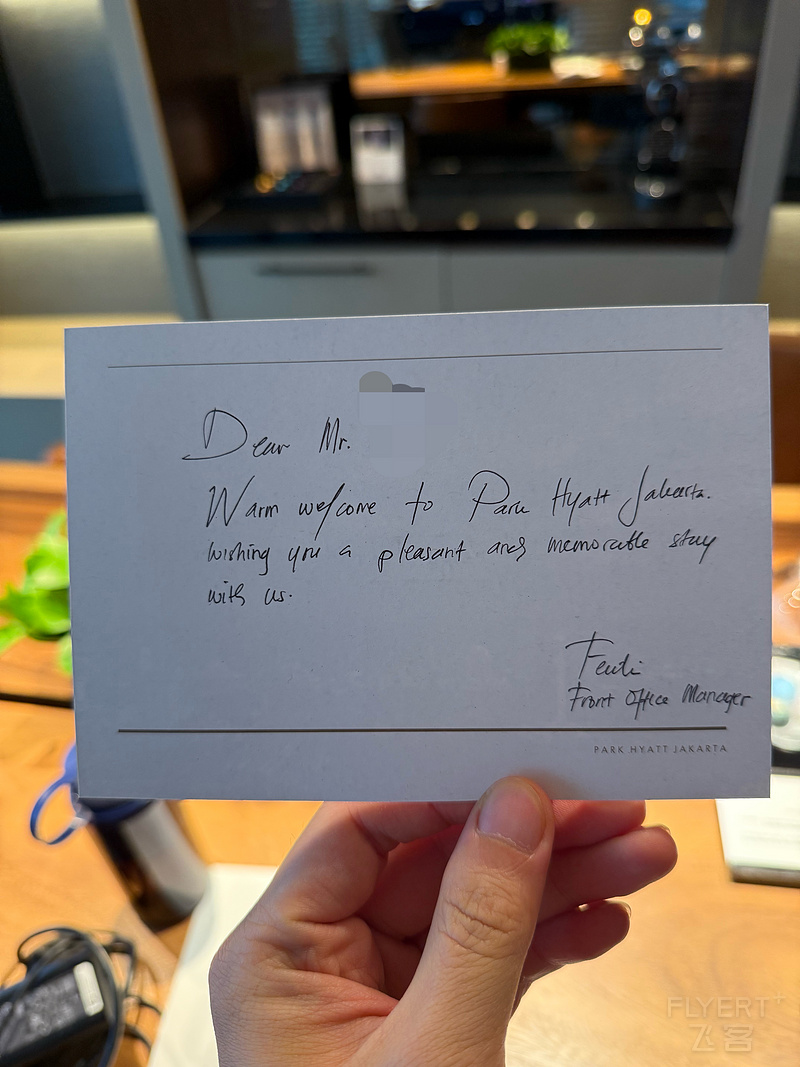 Dear Mr.
Warm welcome to Park Hyatt Jakarta.
wishing you a pleasant and memorable stay
with us.
Front Office Manager
PARK HYATT JAKARTA
FLYERT+
飞客